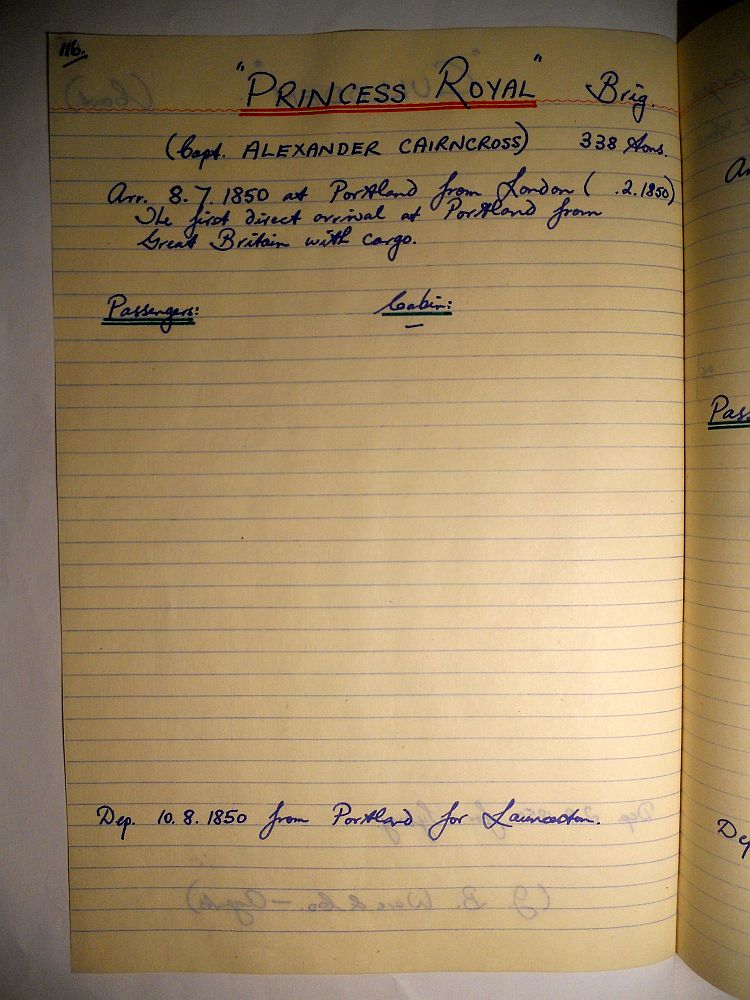 116.
"PRINCESS ROYAL" Brig.
(Capt. ALEXANDER CAIRNCROSS) 338 tons.
Arr. 8.7.1850 at Portland from London ( .2.1850)
The first direct arrival at Portland from
Great Britain with cargo.
Passengers: Cabin:
—
Pass
Dep. 10.8.1850 from Portland for Launceston.
De
(J. B. Were & Co. — Agents)